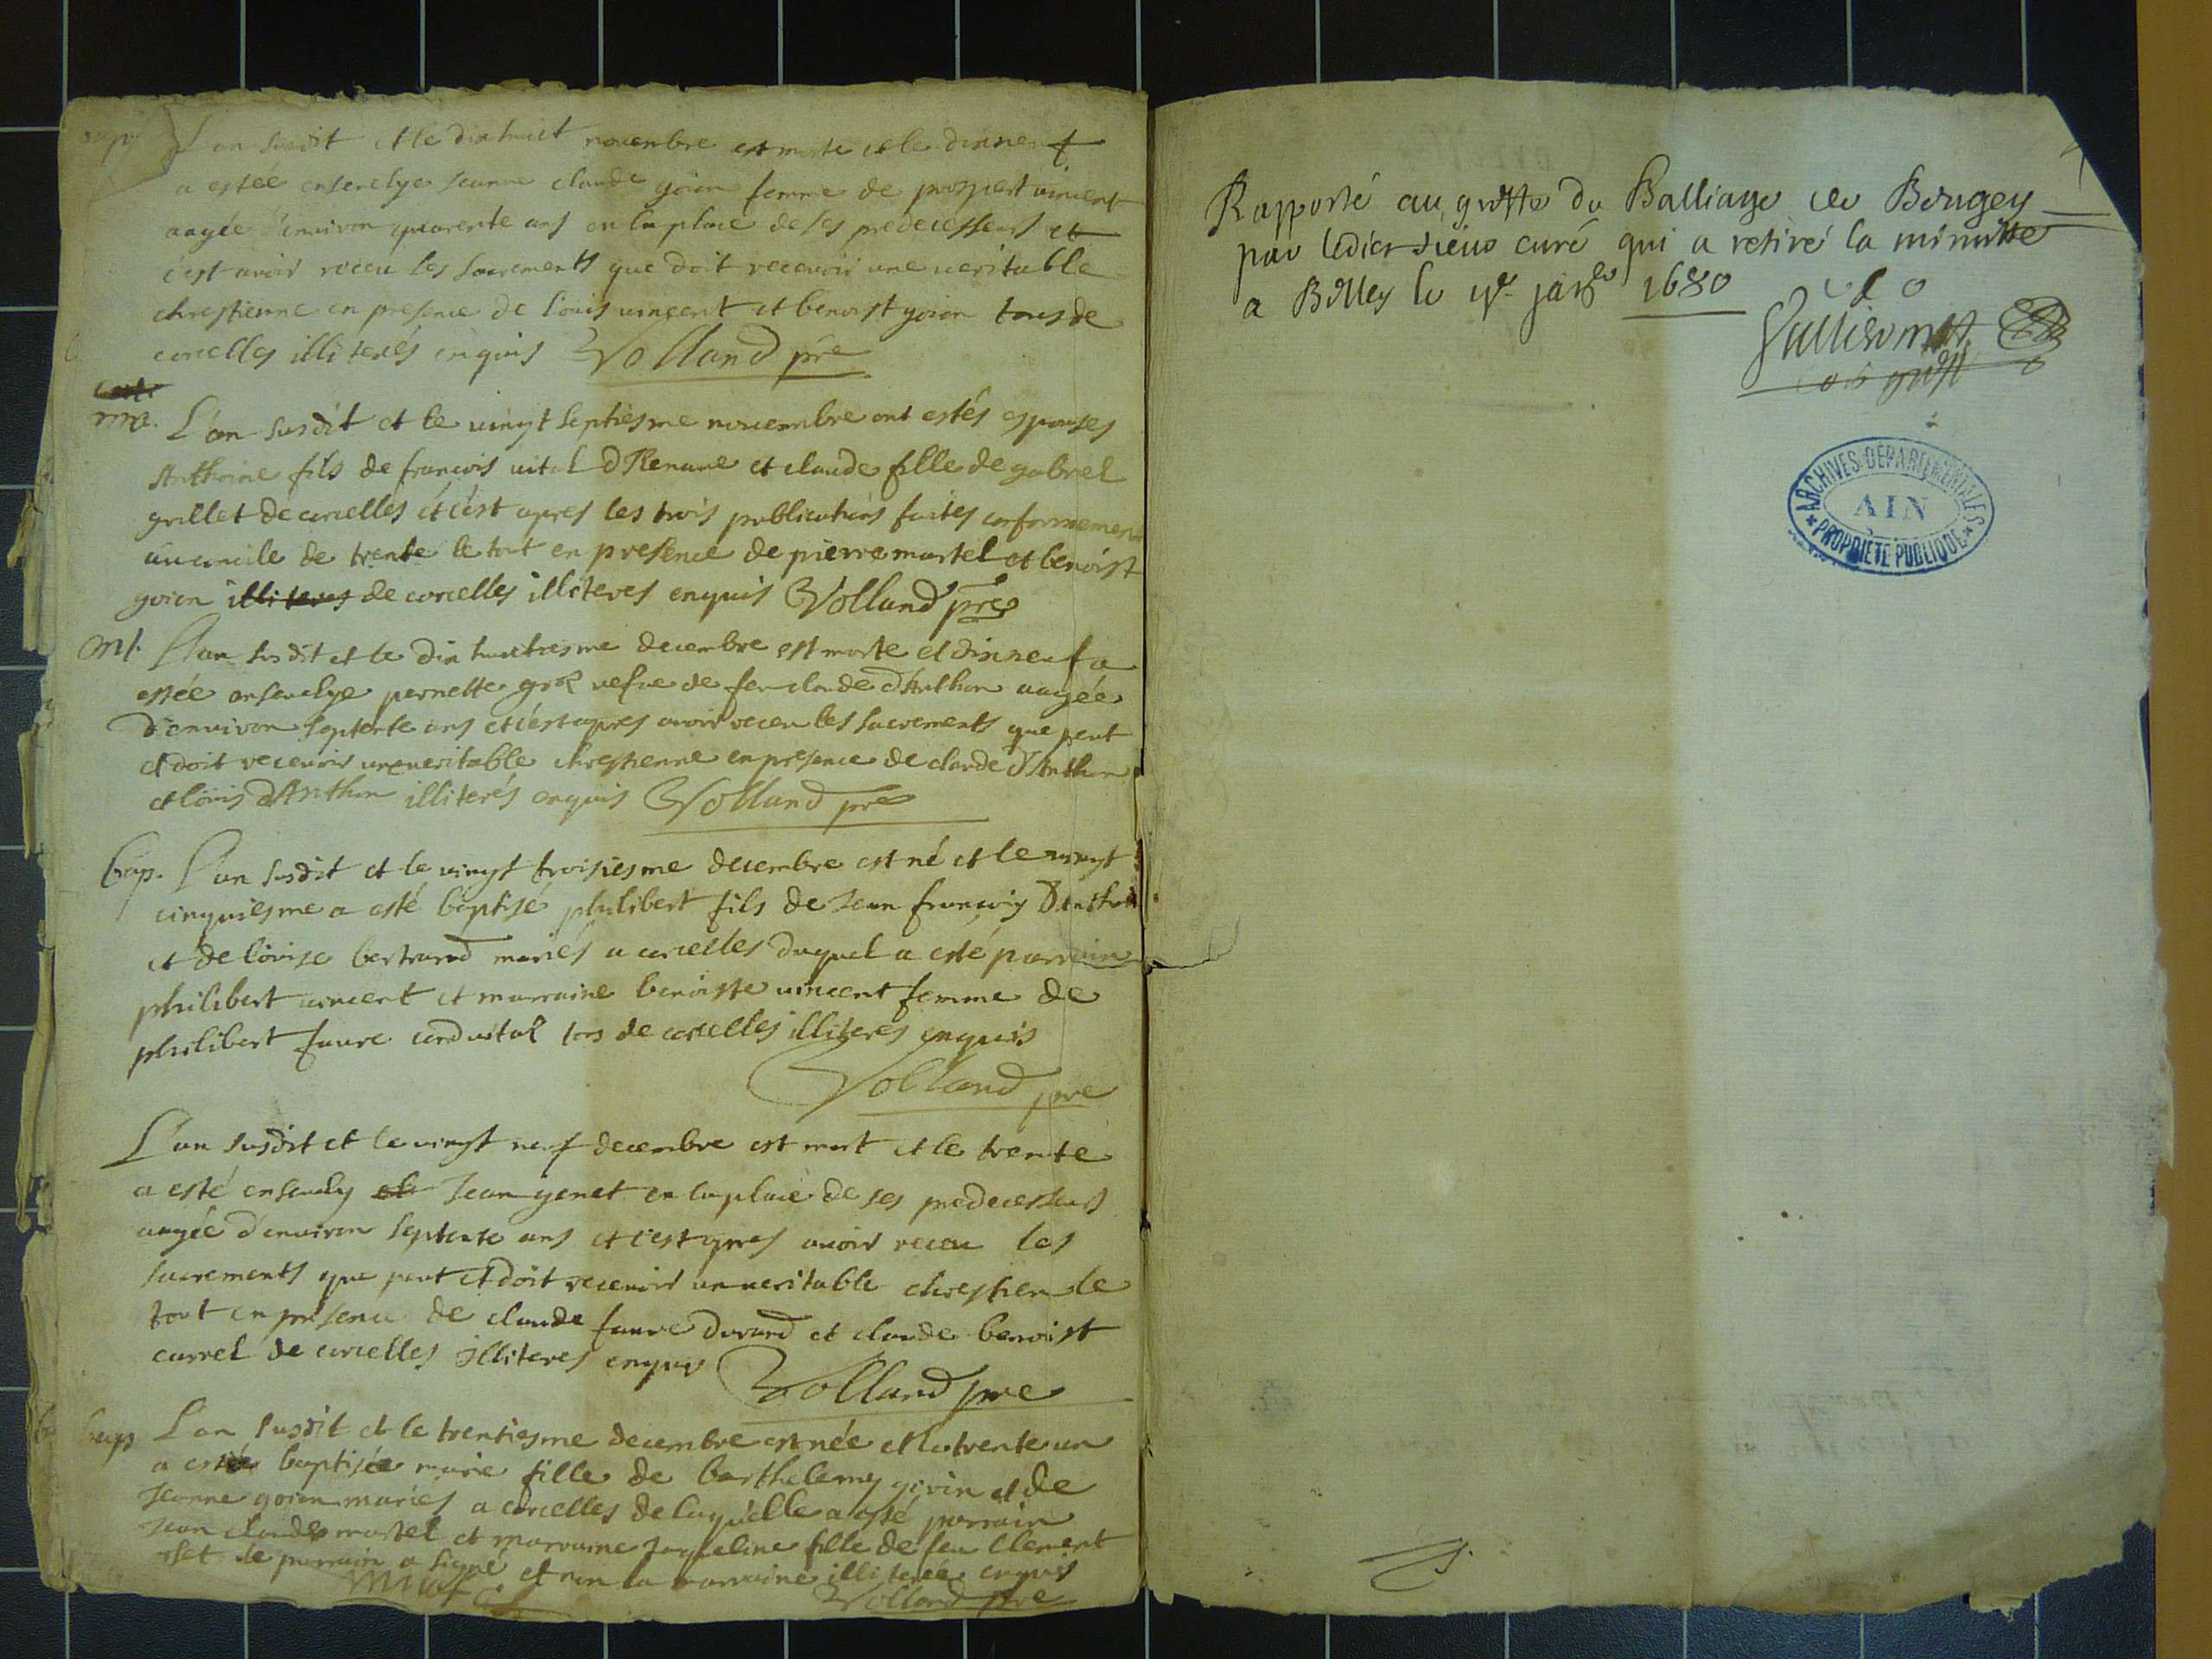 L'an susdit et le dix huict novembre est morte et le dixneuf
a estée ensevelye Jeanne claude goien femme de prospert vincent
aagée d'environ quarente ans en la place de ses predecesseurs et
c'est avoir receu les sacrements que doit recevoir une veritable
chrestienne en presence de louis vincent et benoist goion tous de
corcelles illiterés enquis Volland pre
L'an susdit et le vingt septiesme novembre ont estés espouses
Anthoine fils de francois vital et claude fille de gabriel
grillet de corcelles et c'est apres les trois publications faites conformement
au concile de trente le tout en presence de pierre martel et benoist
goien illiteres de corcelles illiteres enquis Volland pre
mt. L'an susdit et le dix huictiesme decembre est morte et dixneuf a
estée ensevelye pernette vefve de feu claude d'Anthon aagée
d'environ septente ans et c'est apres avoir receu les sacrements que peut
et doit recevoir une veritable chrestienne en presence de claude d'Anthon
et louis d'Anthon illiterés enquis Volland pre
bap. L'an susdit et le vingt troisiesme decembre est né et le vingt
cinquiesme a esté baptisé philibert fils de Jean francois Danthon
et de louise bertrand mariés a corcelles duquel a esté parrain
philibert vincent et marraine benoiste vincent femme de
philibert faure tous de corcelles illiteres enquis
Volland pre
L'an susdit et le vingt neuf decembre est mort et le trente
a esté ensevely Jean genet en la place de ses predecesseurs
aagée d'environ septente ans et c'est apres avoir receu les
sacrements que peut et doit recevoir un veritable chrestien le
tout en presence de claude faure durand et claude benoist
carrel de corcelles illiteres enquis Volland pre
bap L'an susdit et le trentiesme decembre est née et le trente un
a estée baptisée marie fille de barthelemy givin et de
Jeanne goien mariés a corcelles de laquelle a esté parrain
Jean claude martel et marraine Jaqueline fille de feu Clement
le parrain a signé et non la marraine illiterée enquis
Volland pre
Rapporté au greffe du Balliage de Beugey
par ledict sieur curé qui a retiré la minutte
a Belley le janver 1680
ARCHIVES DÉPARTEMENTALES
AIN
PROPRIÉTÉ PUBLIQUE